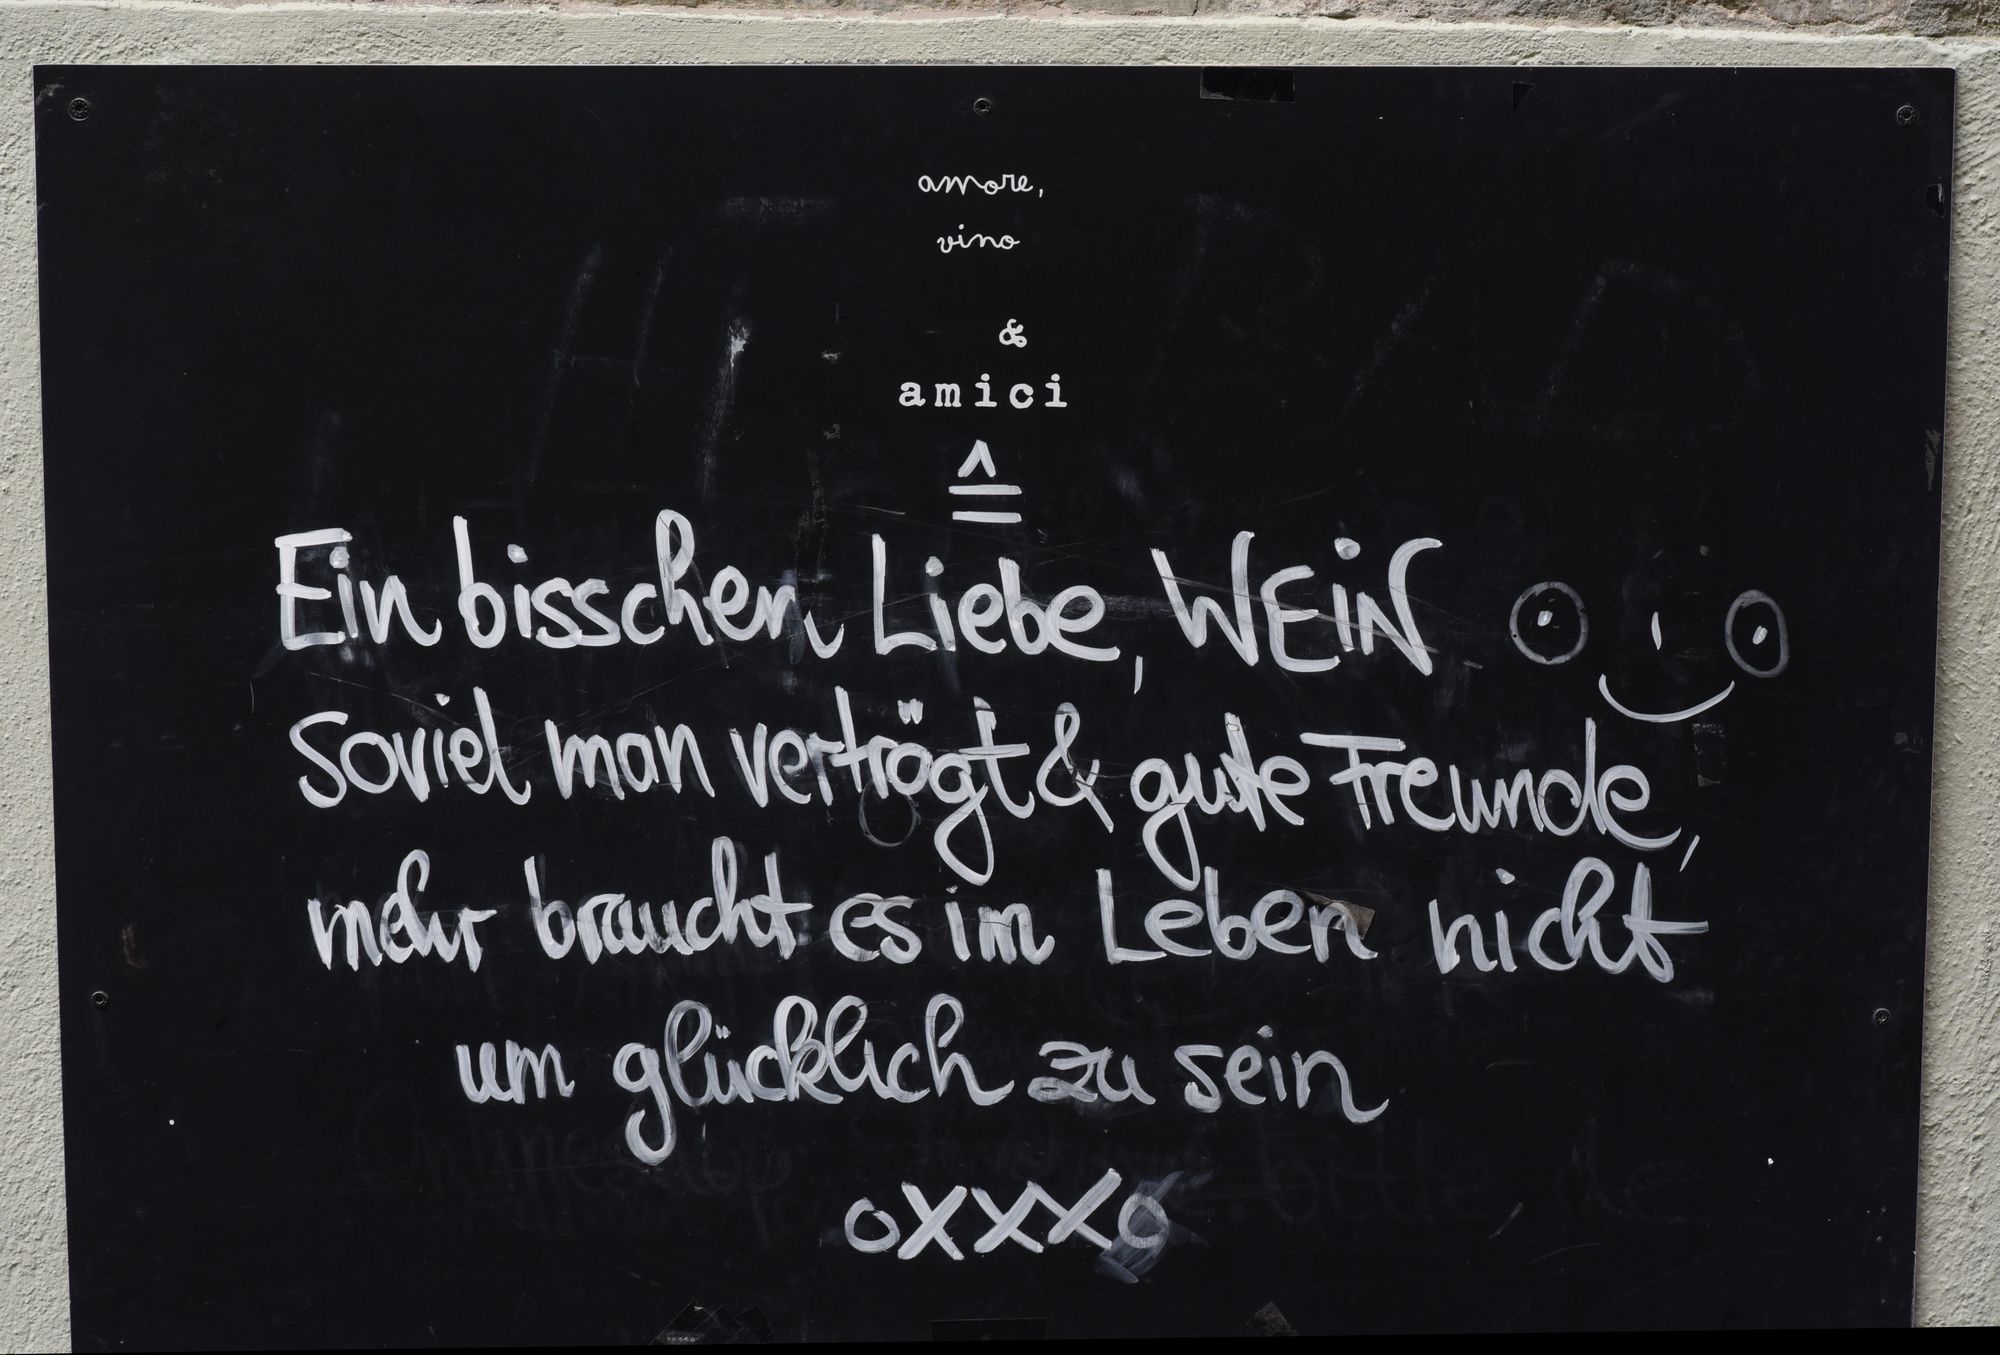 amore,
vino
&
amici
≙
Ein bisschen Liebe, WEiN
soviel man verträgt & gute Freunde,
mehr braucht es im Leben nicht
um glücklich zu sein
oXXXo